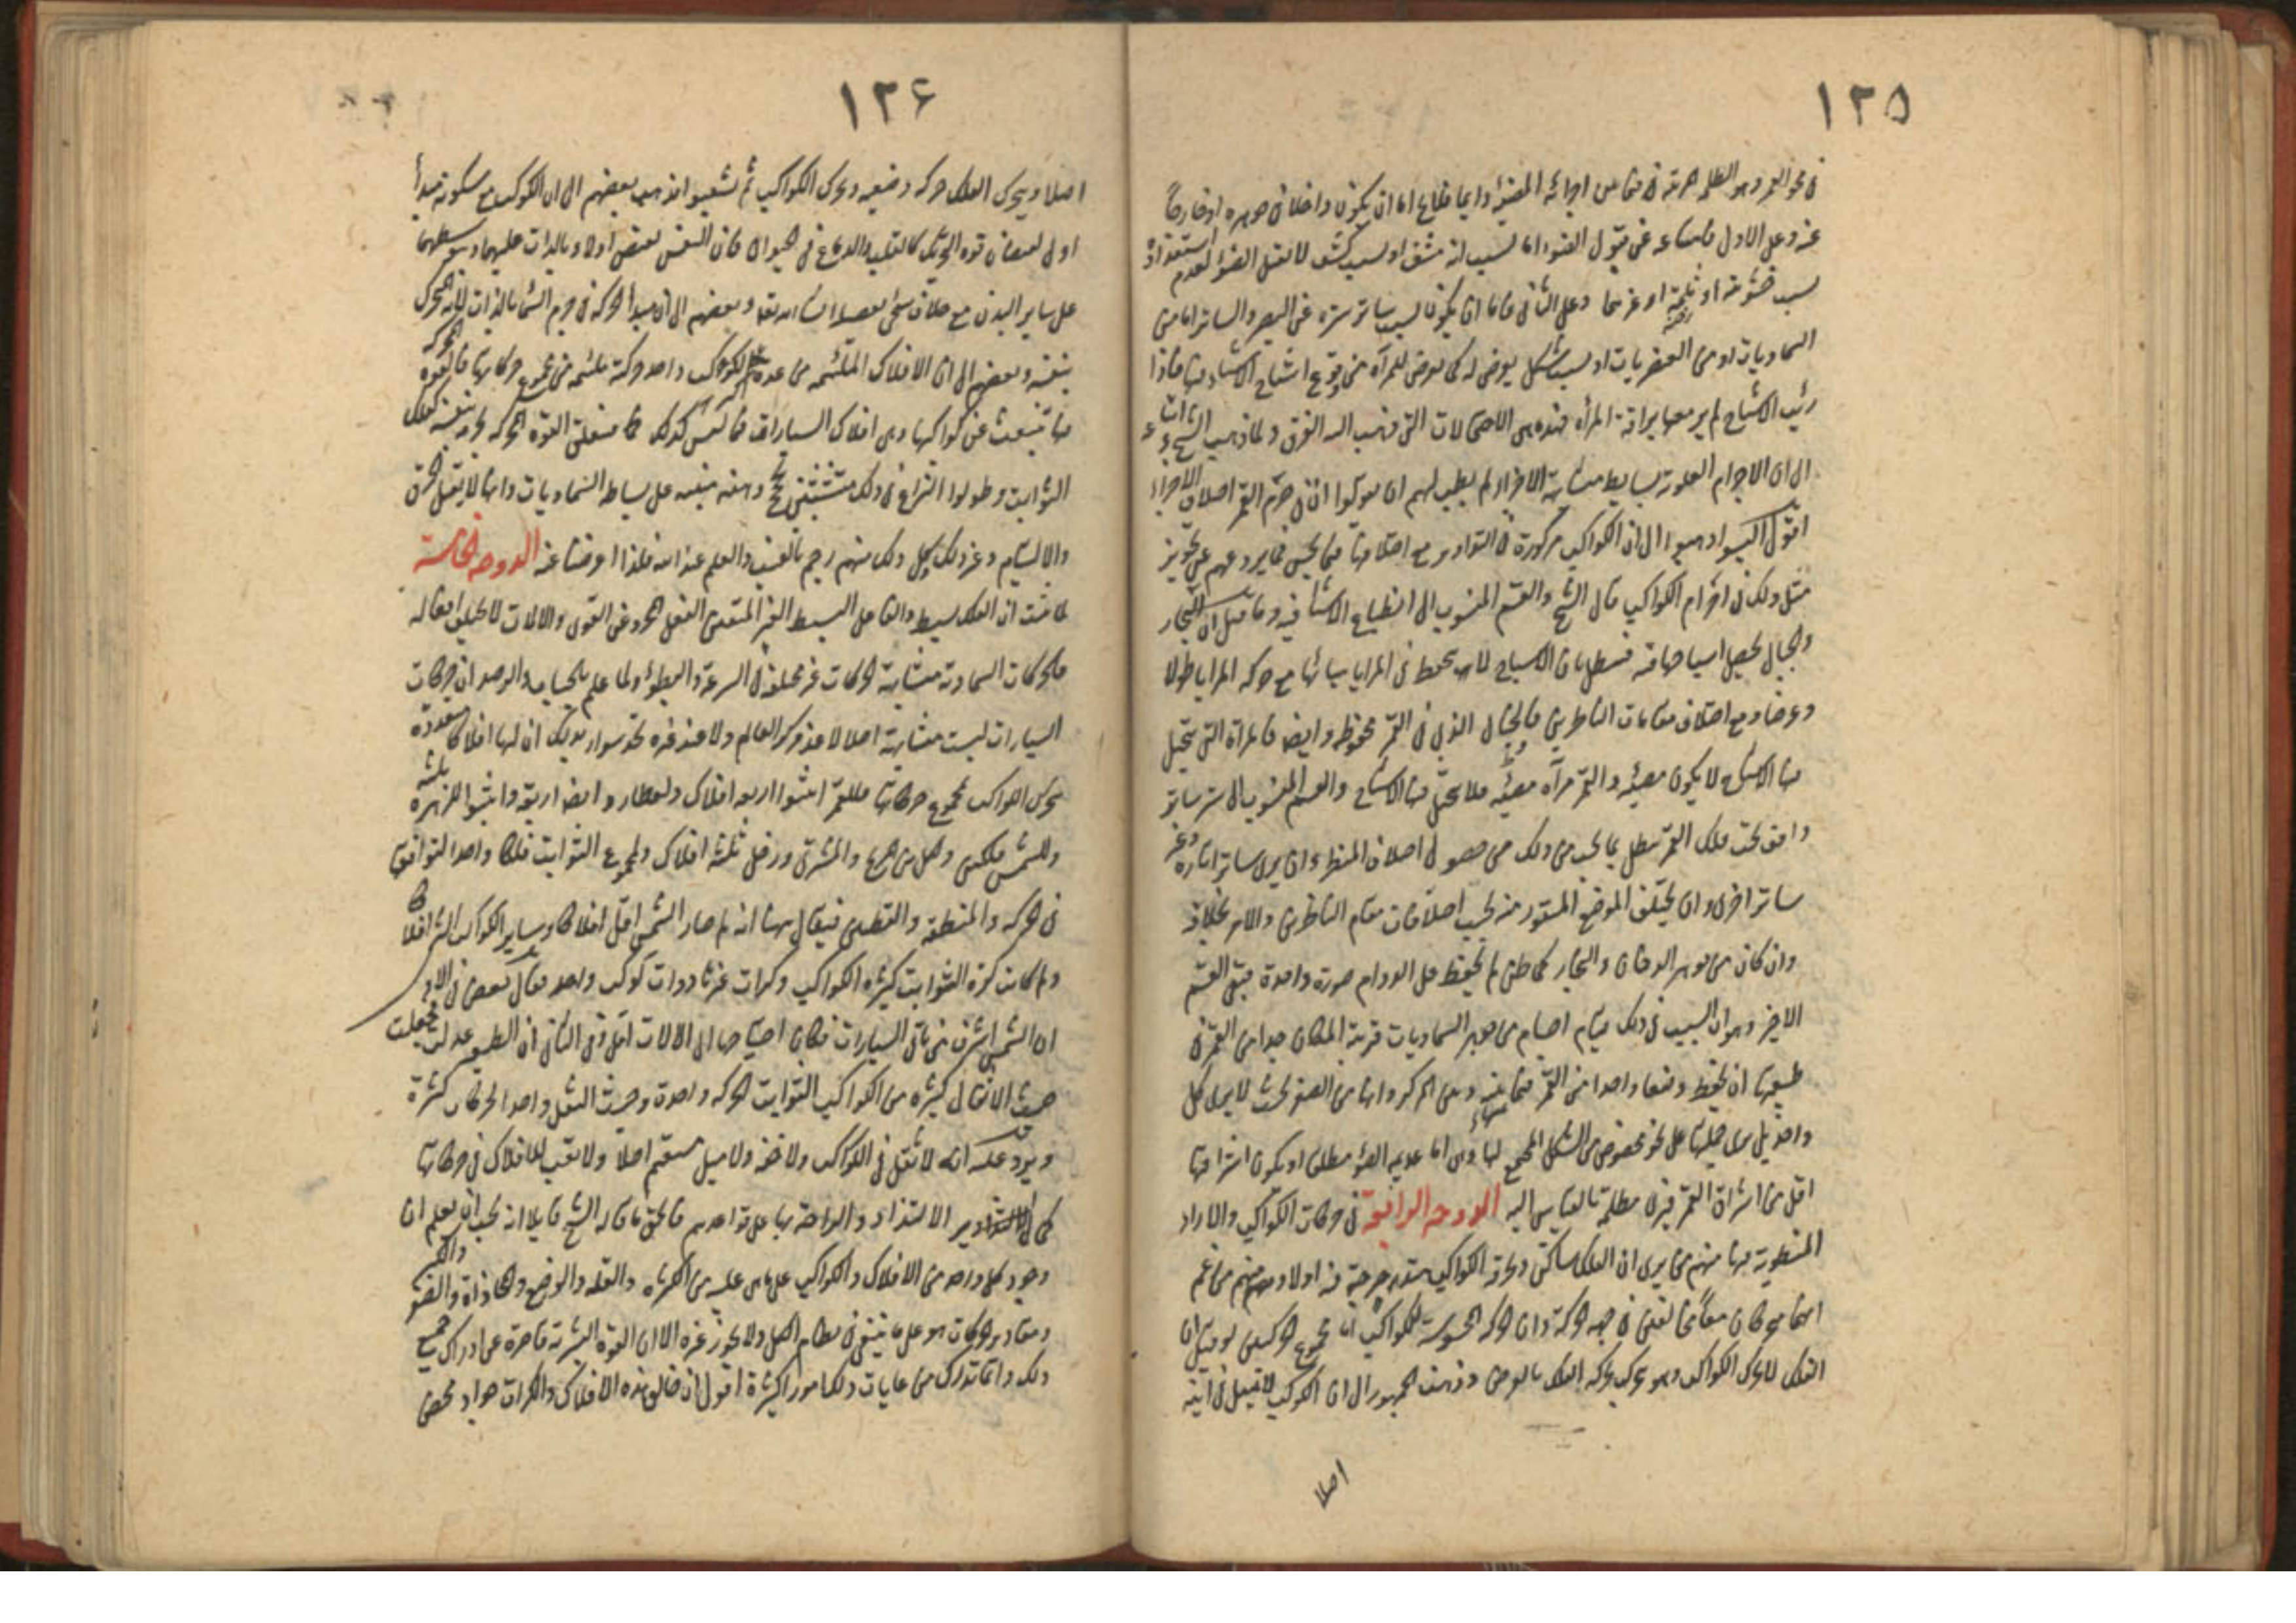 ١٢٥
في محو القمر وهو الظلمة المرئية في
عنه وعلى الاول فامتناعه عن قبول الضوء اما بسبب انه مشف او بسبب كشف لا يقبل الضوء لعدم استعداد
بسبب خشونته او ثلمة او غيرهما وعلى الثاني فاما ان يكون بسبب ساتر ستره عن البصر والساتر اما من
السماويات او من العنصريات او بسبب تشكل يعرض له كما يعرض للمرآة من وقوع اشباح الاشياء فيها فاذا
رئيت الاشباح لم ير معها براقة المرأة فهذه هي الاحتمالات التي ذهب اليه الفرق ولما ذهب الشيخ واتباعه
الى ان الاجرام العلوية بسايط متشابهة الاجزاء لم يطب لهم ان يقولوا ان في جرم القمر اختلاف الاجزاء
اقول اليسوا ذهبوا الى ان الكواكب مركوزة في التداوير مع اختلافها فيما يحس فما يردعهم عن تجويز
مثل ذلك في اجرام الكواكب قال الشيخ والقسم المنسوب الى انطباع الاشباح فيه وما قيل ان البحار
والجبال يحصل اشباحها فيه فيبطل بان الاشباح لا يحفظ في المرايا هيآتها مع حركة المرايا طولا
وعرضا ومع اختلاف مقامات الناظرين فالخيال الذي في القمر محفوظ وايضا فالمرآة التي يتخيل
فيها الاشباح لا يكون مضيئة والقمر مرآة مضيئة فلا يتخيل فيها الاشباح والقسم المنسوب الى ستر ساتر
واقف تحت فلك القمر يبطل بما يجب من ذلك من حصول اختلاف المنظر وان يرى ساترا تارة وغير
ساتر اخرى وان يختلف الموضع المستور منه بحسب اختلافات مقام الناظرين والامر بخلافه
وان كان من جوهر الدخان والبخار كما ظن لم يحفظ على الدوام صورة واحدة فبقى القسم
الاخير وهو ان السبب في ذلك قيام اجسام من جوهر السماويات قريبة المكان جدا من القمر في
طبيعتها ان يحفظ وضعا واحدا من القمر فيما بينه وبين المركز وانها من الصغر بحيث لا يرى كل
واحد بل يرى جملتها على نحو مخصوص من الشكل المجتمع لها وهي اما عديمة الضوء مطلقا او يكون اشراقها
اقل من اشراق القمر فيرى مظلمة بالقياس اليه الدوحة الرابعة في حركات الكواكب والاراء
المنظورة فيها منهم من يرى ان الفلك ساكن وحركة الكواكب متدحرجة فيه اولا ومنهم من زعم
انهما يتحركان معا مخالفتين في جهة الحركة وان الحركة المحسوسة للكواكب انما مجموع الحركتين او قيل ان
الفلك لا يحرك الكواكب وهو يحرك بحركة الفلك بالعرض وذهب الجمهور الى ان الكوكب لا ينتقل في اينه
اصلا
١٢٦
اصلا ويحرك الفلك حركة وضعية ويحرك الكواكب ثم تشعبوا فذهب بعضهم الى ان الكوكب مع سكونه مبدأ
اولي لفيضان قوة التحريك كالقلب والدماغ في الحيوان فان النفس تفيض اولا وبالذات عليهما وبتوسطهما
على ساير البدن مع خلاف وبعضهم الى ان مبدأ الحركة في جرم السماء بالذات لانه المتحرك
بنفسه وبعضهم الى ان الافلاك الملتئمة من عدة الكوكب واحد وحركة ملتئمة من مجموع حركاتها فالقوة المحركة
فيها تنبعث عن كواكبها وهي افلاك السيارات فما ليس كذلك فما يتعلق القوة المحركة بجرمه نفسه كفلك
الثوابت وطولوا النزاع في ذلك متشبثين بحجج وهنة مبنية على بساطة السماويات وانها لا يقبل الخرق
والالتيام وغير ذلك وكل ذلك منهم رجم بالغيب والعلم عند الله فلذا اعرضنا عنه الدوحة الخامسة
لما ثبت ان الفلك بسيط والفاعل البسيط الغير المتفنن الفعل المجرد عن القوى والالات لا يختلف افعاله
فالحركات السماوية متشابهة الحركات غير مختلفة في السرعة والبطؤ ولما علم بالحساب والرصد ان حركات
السيارات ليست متشابهة اصلا لا عند مركز العالم ولا عند غيره تحدسوا ان لها افلاكا متعددة
يحرك الكواكب بمجموع حركاتها فللقمر اثبتوا اربعة افلاك ولعطارد ايضا اربعة واثبتوا للزهرة ثلثة
وللشمس فلكين ولكل من المريخ والمشتري وزحل ثلثة افلاك ولمجموع الثوابت فلكا واحدا لتوافقها
في الحركة والمنطقة والقطبين فيقال ههنا انه لم صار الشمس اقل افلاكا وساير الكواكب اكثر افلاكا
ولم كانت كرة الثوابت كثيرة الكواكب وكرات غيرها ذوات كوكب واحد فقال بعض في الاول
ان الشمس اشرف من باقي السيارات فكان احتياجها الى الالات اقل وفي الثاني ان الطبيعة عدلت فجعلت
حيث الاثقال كثيرة من الكواكب الثوابت الحركة واحدة وحيث الثقل واحد الحركات كثيرة
ويرد عليه انه لا ثقل في الكواكب ولا خفة ولا ميل مستقيم اصلا ولا تعب للافلاك في حركاتها
كما لها الالتذاذ والراحة بها على قواعدهم فالحق ما قاله الشيخ قايلا انه يجب ان يعلم ان
وجود كل واحد من الافلاك والكواكب على ما هي عليه من الكثرة والقلة والوضع والمحاذاة والصغر والكبر
ومقادير الحركات هو على ما ينبغي في نظام الكل ولا يجوز غيره الا ان القوة البشرية قاصرة عن ادراك جميع
ذلك وانما تدرك من غايات ذلك امورا كثيرة اقول ان خالق هذه الافلاك والكرات جواد محض